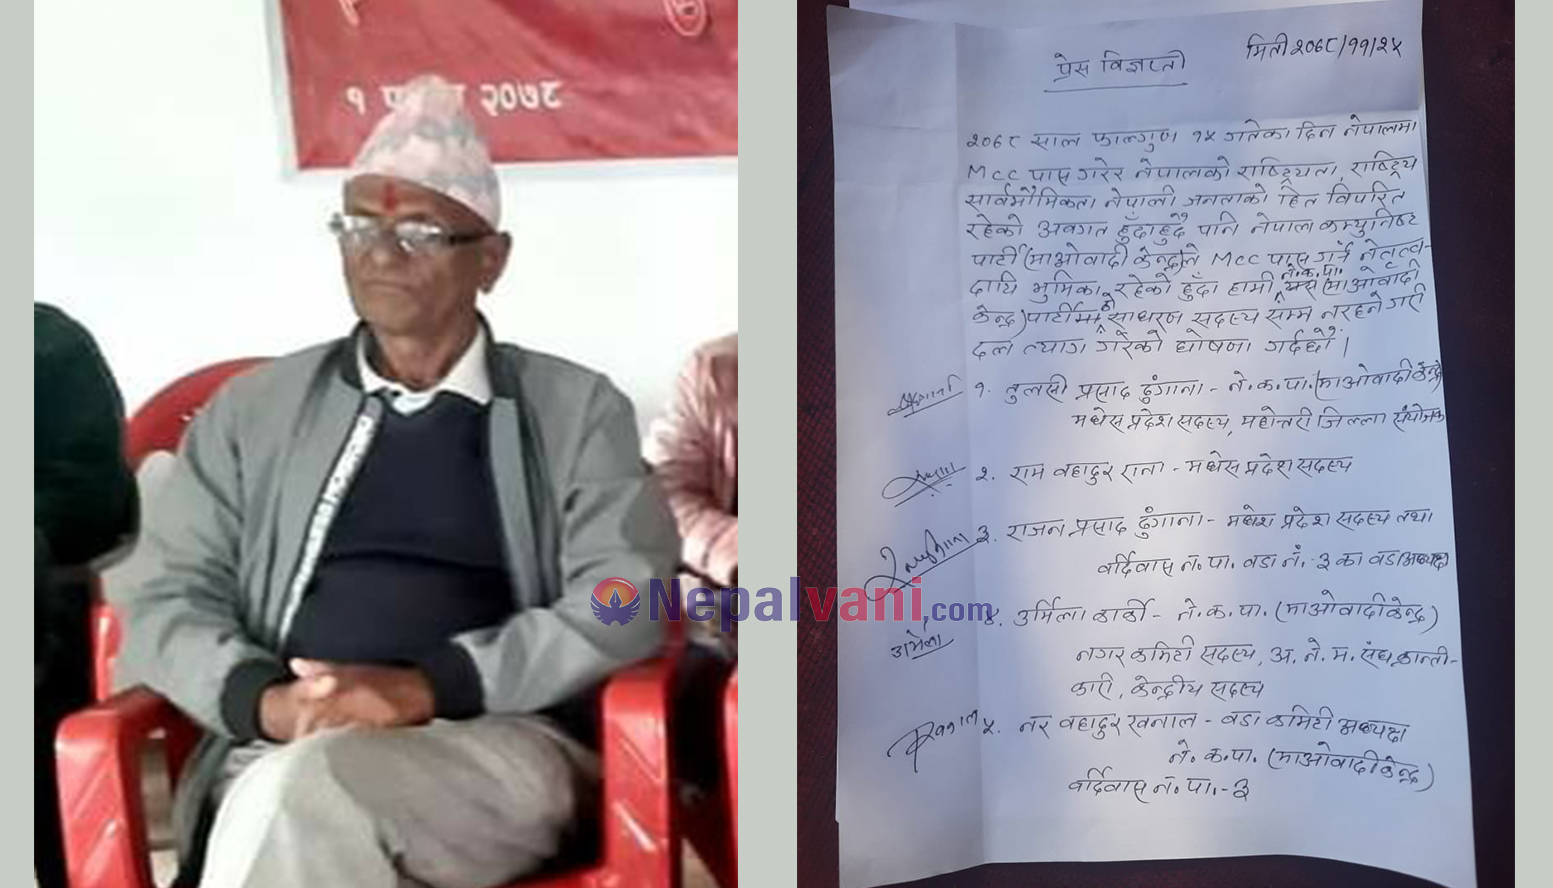 १ २०७८
प्रेस विज्ञप्ती
मिती २०७८/११/२५
२०७८ साल फाल्गुण १५ गतेका दिन नेपालमा
Mcc पास गरेर नेपालको राष्ट्रियता, राष्ट्रिय
सार्वभौमिकता नेपाली जनताको हित विपरित
रहेको अवगत हुँदाहुदै पनि नेपाल कम्युनिष्ट
पार्टी (माओवादी केन्द्र)ले Mcc पास गर्न नेतृत्व-
दायि भुमिका रहेको हुँदा हामी ने.क.पा. (माओवादी
केन्द्र) पार्टीमा को साधरण सदस्य सम्म नरहने गरी
दल त्याग गरेको घोषणा गर्दछौं।
१. तुलसी प्रसाद ढुंगाना - ने.क.पा. (माओवादी केन्द्र)
मधेस प्रदेश सदस्य, महोत्तरी जिल्ला संयोजक
२. राम बहादुर राना - मधेस प्रदेश सदस्य
३. राजन प्रसाद ढुंगाना - मधेश प्रदेश सदस्य तथा
बर्दिवास न.पा. वडा नं. - ३ का वडा अध्यक्ष
Nepalvani.com
४. उर्मिला कार्की - ने.क.पा. (माओवादी केन्द्र)
उर्मिला
नगर कमिटी सदस्य, अ.ने.म.संघ, क्रान्ती-
कारी, केन्द्रीय सदस्य
५. नर बहादुर खनाल - वडा कमिटी अध्यक्ष
ने.क.पा. (माओवादी केन्द्र)
बर्दिवास न.पा.-३